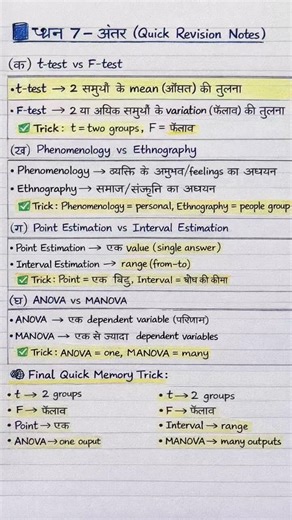 प्थन 7 – अंतर (Quick Revision Notes)
(क) t-test vs F-test
• t-test → 2 समुथौ के mean (औंसत) की तुलना
• F-test → 2 या अयिक समुथौ के variation (फेंलाव) की तुलना
✅ Trick: t = two groups, F = फेंलाव
(ख) Phenomenology vs Ethnography
• Phenomenology → व्यक्ति के अमुभव/feelings का अघयन
• Ethnography → समाज/संज्रूति का अघयन
✅ Trick: Phenomenology = personal, Ethnography = people group
(ग) Point Estimation vs Interval Estimation
• Point Estimation → एक value (single answer)
• Interval Estimation → range (from-to)
✅ Trick: Point = एक बिदु, Interval = षोघ की कीमा
(घ) ANOVA vs MANOVA
• ANOVA → एक dependent variable (परिणाम)
• MANOVA → एक से ज्यादा dependent variables
✅ Trick: ANOVA = one, MANOVA = many
Final Quick Memory Trick:
• t → 2 groups
• F → फेंलाव
• Point → एक
• ANOVA → one ouput
• t → 2 groups
• F → फेंलाव
• Interval → range
• MANOVA → many outputs